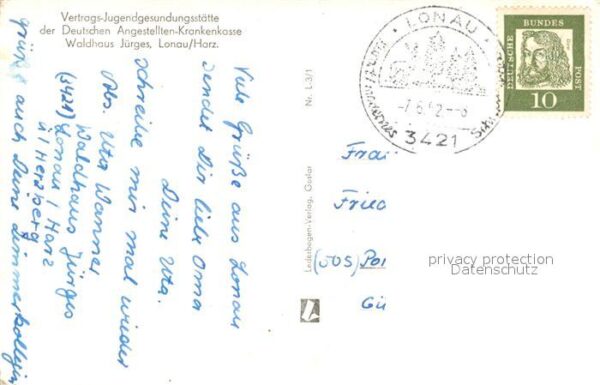 Vertrags-Jugendgesundungsstätte
der Deutschen Angestellten-Krankenkasse
Waldhaus Jürges, Lonau/Harz.
Viele Grüße aus Lonau
sendet Dir liebe Oma
Deine Uta.
Schreibe mir mal wieder
Abs. Uta Wanner
Waldhaus Jürges
(3421) Lonau / Harz
ü/Herzberg
grüße auch Deine Zimmerkollegin
Nr. L-3/1
Lederbogen-Verlag, Goslar
LONAU
-7.6.62.--8
3421
DEUTSCHE
BUNDES
POST
10
Frau
Fried
(505)
Gü
privacy protection
Datenschutz